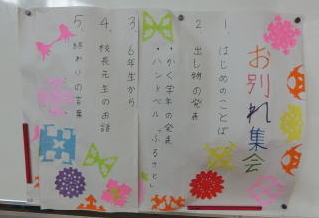 お別れ集会
1. はじめのことば
2 出し物の発表
・かく学年の発表
・ハンドベル「ふるさと」
3. 6年生から
4. 校長先生のお話
5. 終わりの言葉